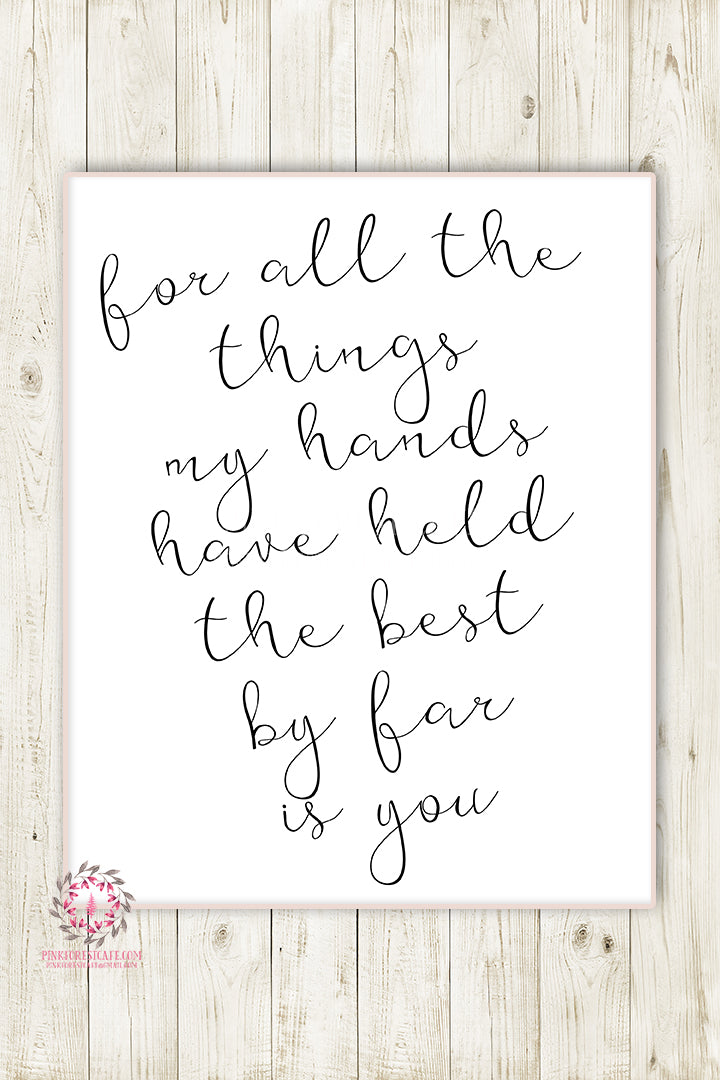 for all the
things
my hands
have held
the best
by far
is you
PINKFORESTCAFE.COM
PINKFORESTCAFE@GMAIL.COM